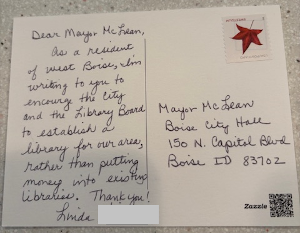 Dear Mayor McLean,
As a resident
of West Boise, I'm
writing to you to
encourge the City
and the Library Board
to establish a
library for our area,
rather than putting
money into existing
libraries. Thank you!
Linda
Mayor McLean
Boise City Hall
150 N. Capitol Blvd
Boise ID 83702
Zazzle